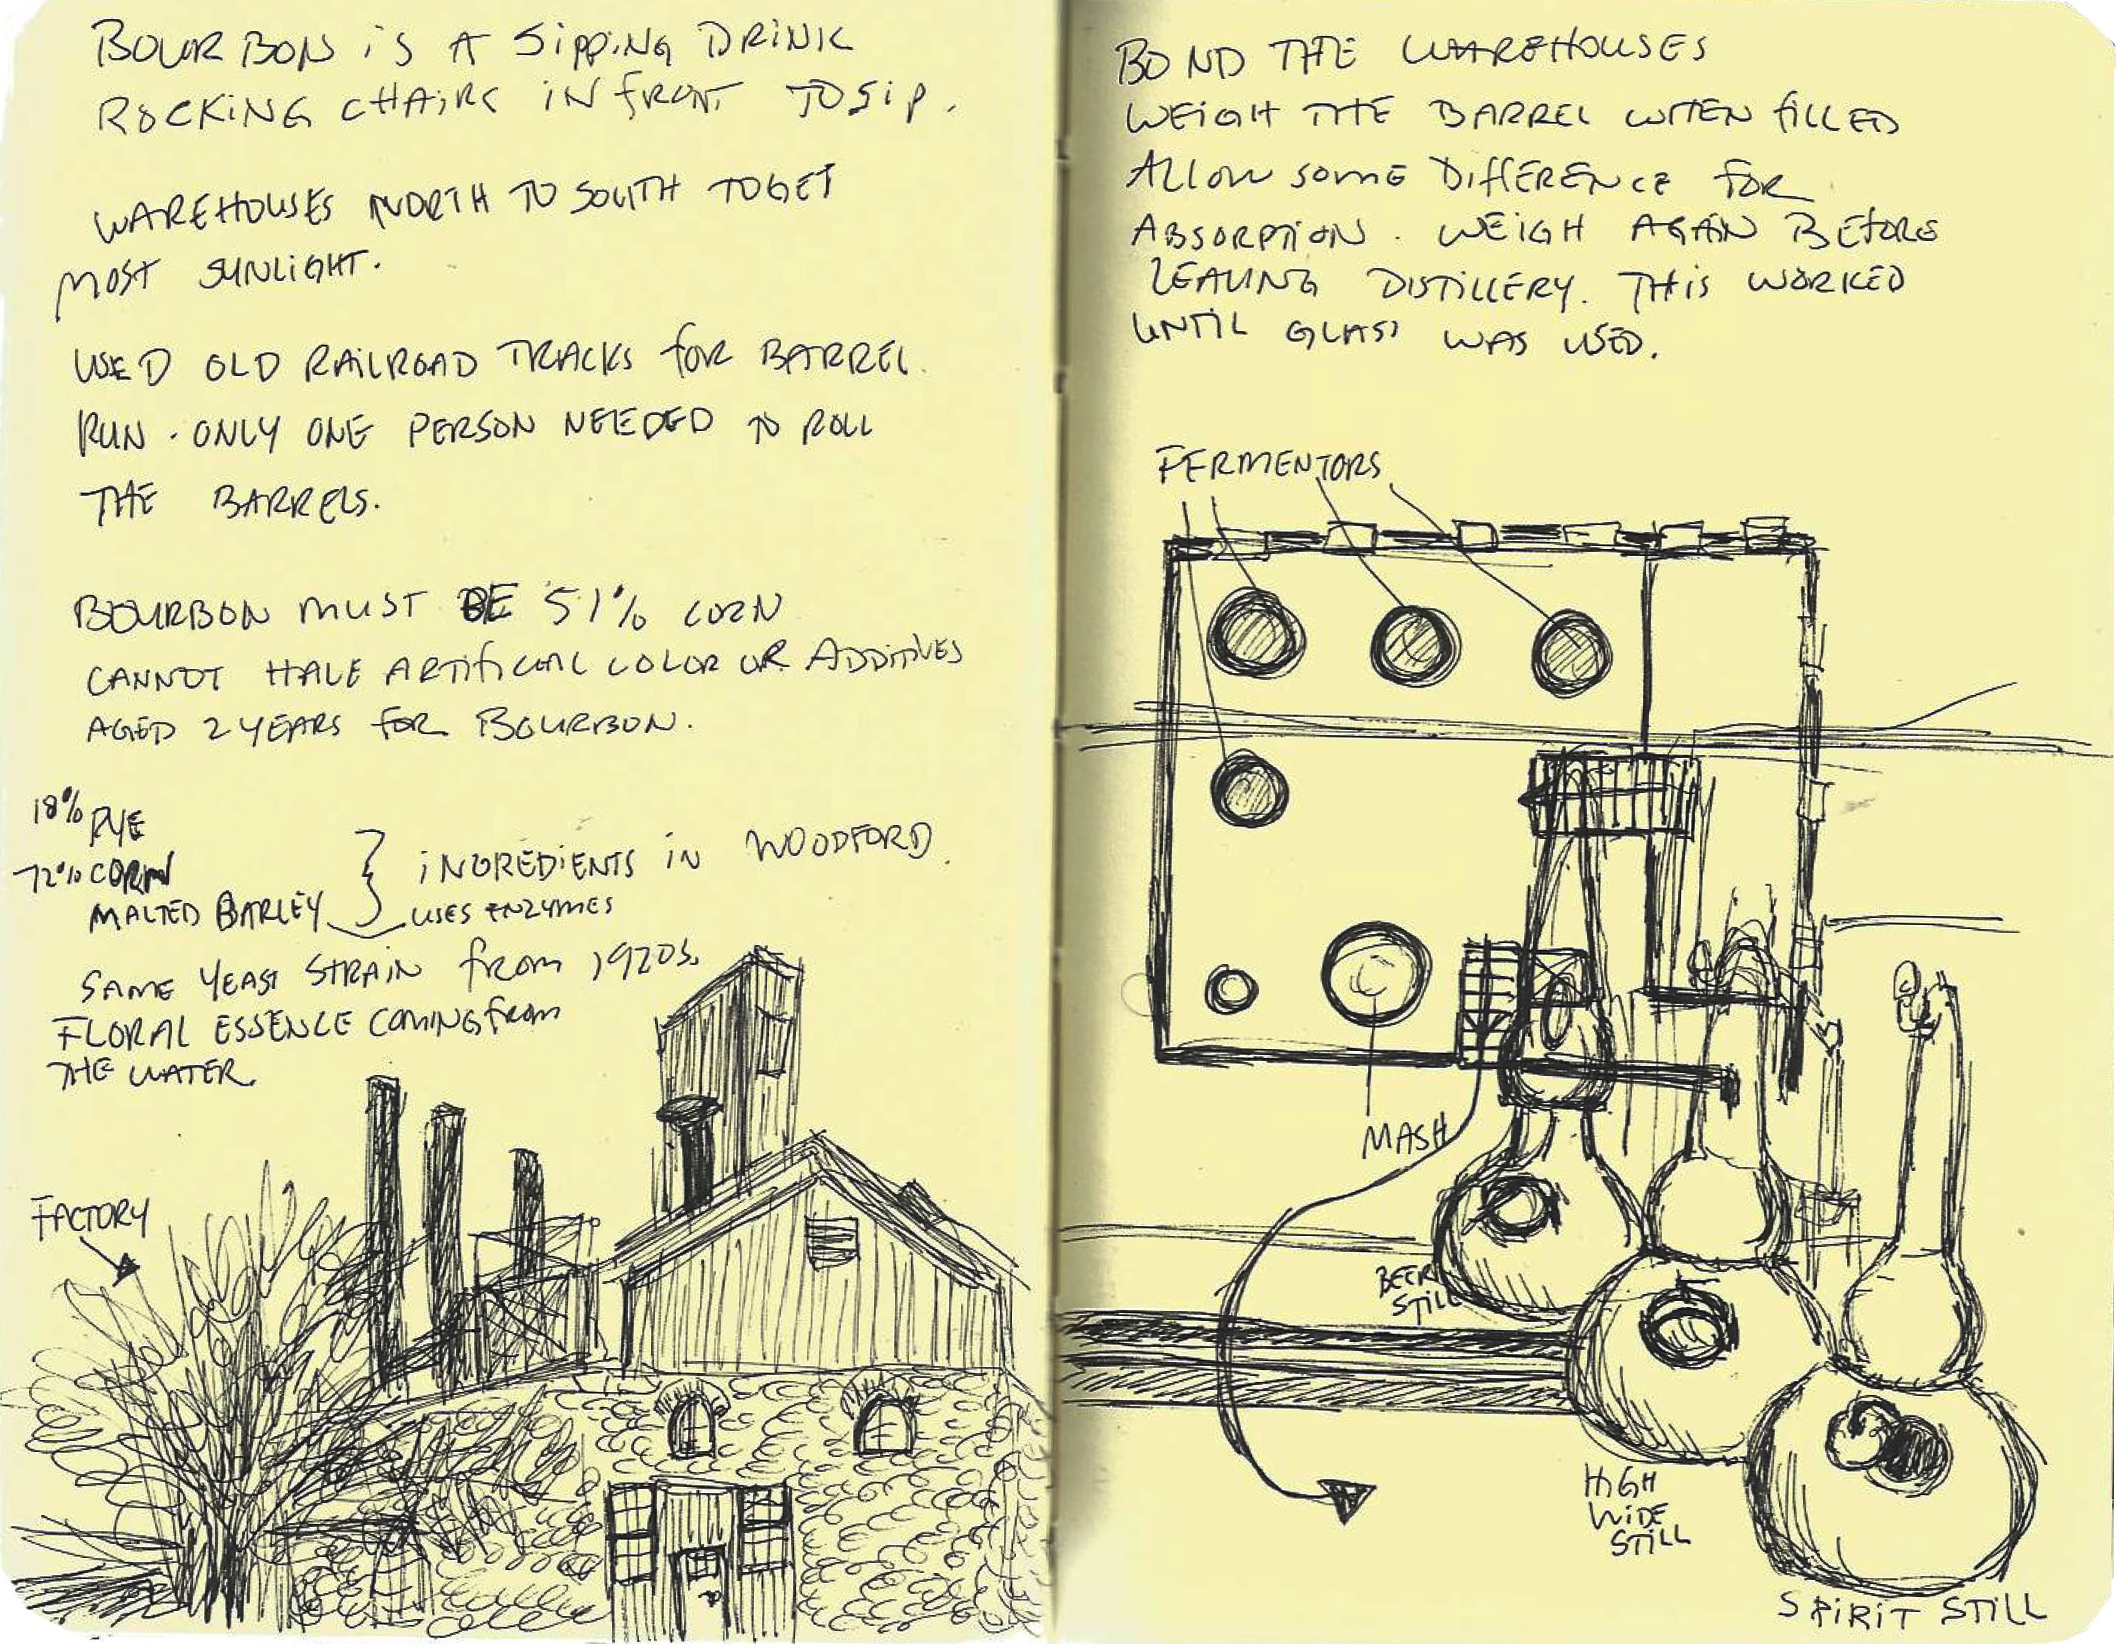 BOURBON IS A SIPPING DRINK
ROCKING CHAIRS IN FRONT TO SIP.
WAREHOUSES NORTH TO SOUTH TO GET
MOST SUNLIGHT.
USED OLD RAILROAD TRACKS FOR BARREL
RUN. ONLY ONE PERSON NEEDED TO ROLL
THE BARRELS.
BOURBON MUST BE 51% CORN
CANNOT HAVE ARTIFICIAL COLOR OR ADDITIVES
AGED 2 YEARS FOR BOURBON.
18% RYE
72% CORN
MALTED BARLEY
INGREDIENTS IN WOODFORD.
USES ENZYMES
SAME YEAST STRAIN FROM 1920S.
FLORAL ESSENCE COMING FROM
THE WATER.
FACTORY
BOND THE WAREHOUSES
WEIGH THE BARREL WHEN FILLED
ALLOW SOME DIFFERENCE FOR
ABSORPTION. WEIGH AGAIN BEFORE
LEAVING DISTILLERY. THIS WORKED
UNTIL GLASS WAS USED.
FERMENTORS
MASH
BEER
STILL
HIGH
WIDE
STILL
SPIRIT STILL